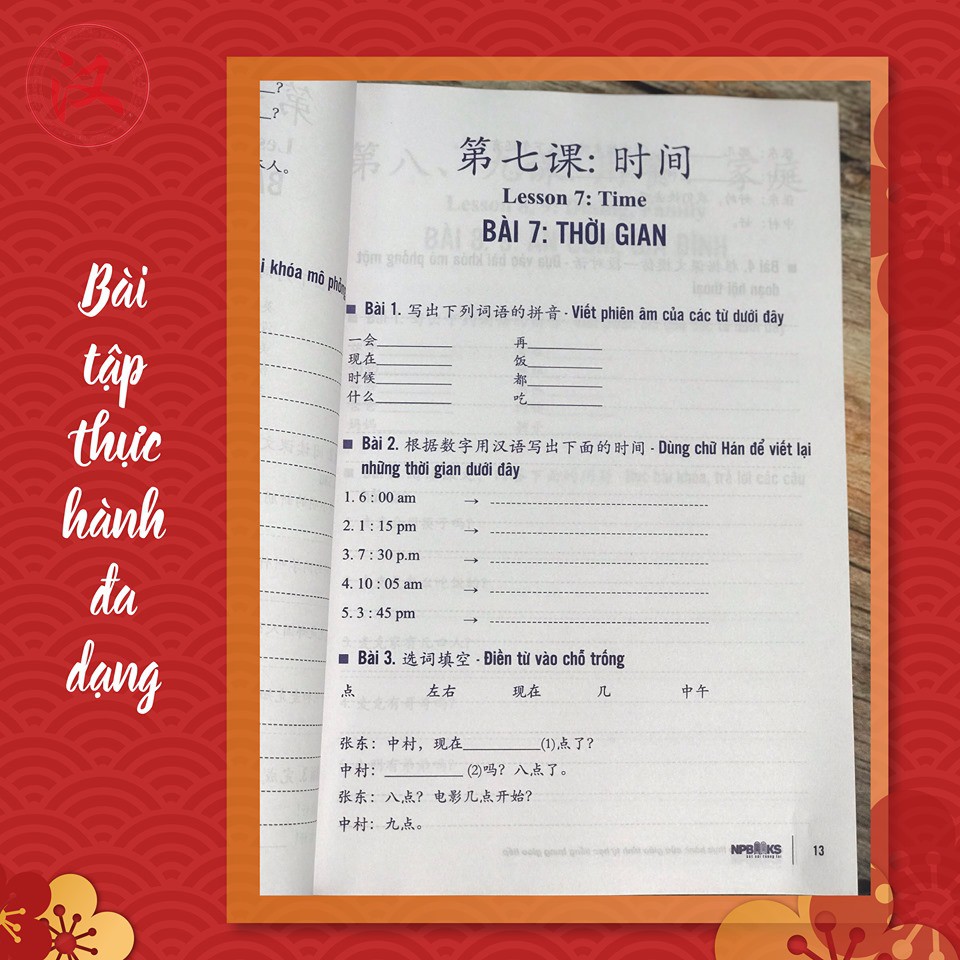 汉
Bài
tập
thực
hành
đa
dạng
?
?
人。
i khóa mô phỏng
第七课: 时间
Lesson 7: Time
BÀI 7: THỜI GIAN
Bài 1. 写出下列词语的拼音 - Viết phiên âm của các từ dưới đây
一会__________ 再__________
现在__________ 饭__________
时候__________ 都__________
什么__________ 吃__________
Bài 2. 根据数字用汉语写出下面的时间 - Dùng chữ Hán để viết lại
những thời gian dưới đây
1. 6 : 00 am →
2. 1 : 15 pm →
3. 7 : 30 p.m →
4. 10 : 05 am →
5. 3 : 45 pm →
Bài 3. 选词填空 - Điền từ vào chỗ trống
点 左右 现在 几 中午
张东：中村，现在__________(1)点了？
中村：__________ (2)吗？八点了。
张东：八点？电影几点开始？
中村：九点。
NPBOOKS
13